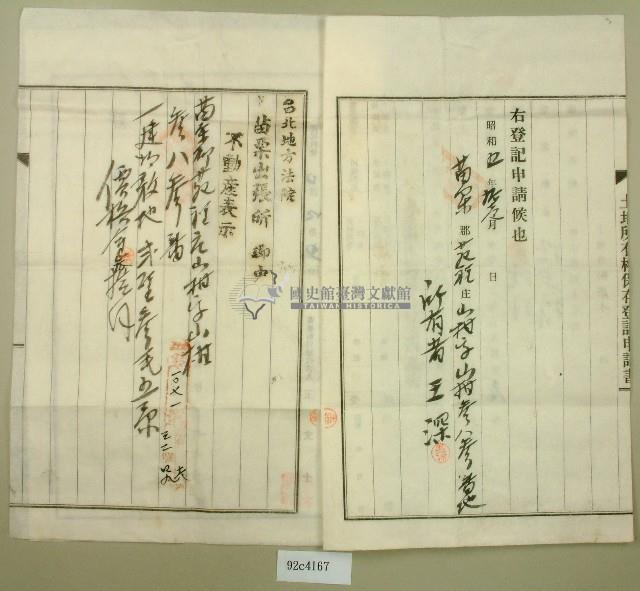 土地所有權保存登記申請書
右登記申請候也
昭和五年拾貳月 日
苗栗郡苑裡庄山柑字山柑參八參番地
所有者 王深
台北地方法院
苗栗出張所 御中
不動産表示
苗栗郡苑裡庄山柑字山柑
參八參番
一建物敷地 貳厘參毛五糸
價格
國史館臺灣文獻館
TAIWAN HISTORICA
92c4167